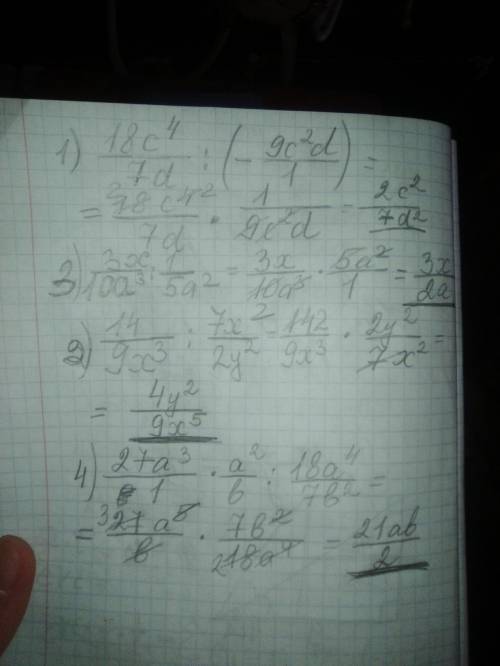 1) 18c⁴/7d : (- 9c²d/1) =
= ²18c⁴²/7d · 1/9c²d = 2c²/7d²
3) 3x/10a³ : 1/5a² = 3x/10a³ · 5a²/1 = 3x/2a
2) 14/9x³ : 7x²/2y² = 14²/9x³ · 2y²/7x² =
= 4y²/9x⁵
4) 27a³/1 · a²/b : 18a⁴/7b² =
= ³27a⁵/b · 7b²/²18a⁴ = 21ab/2